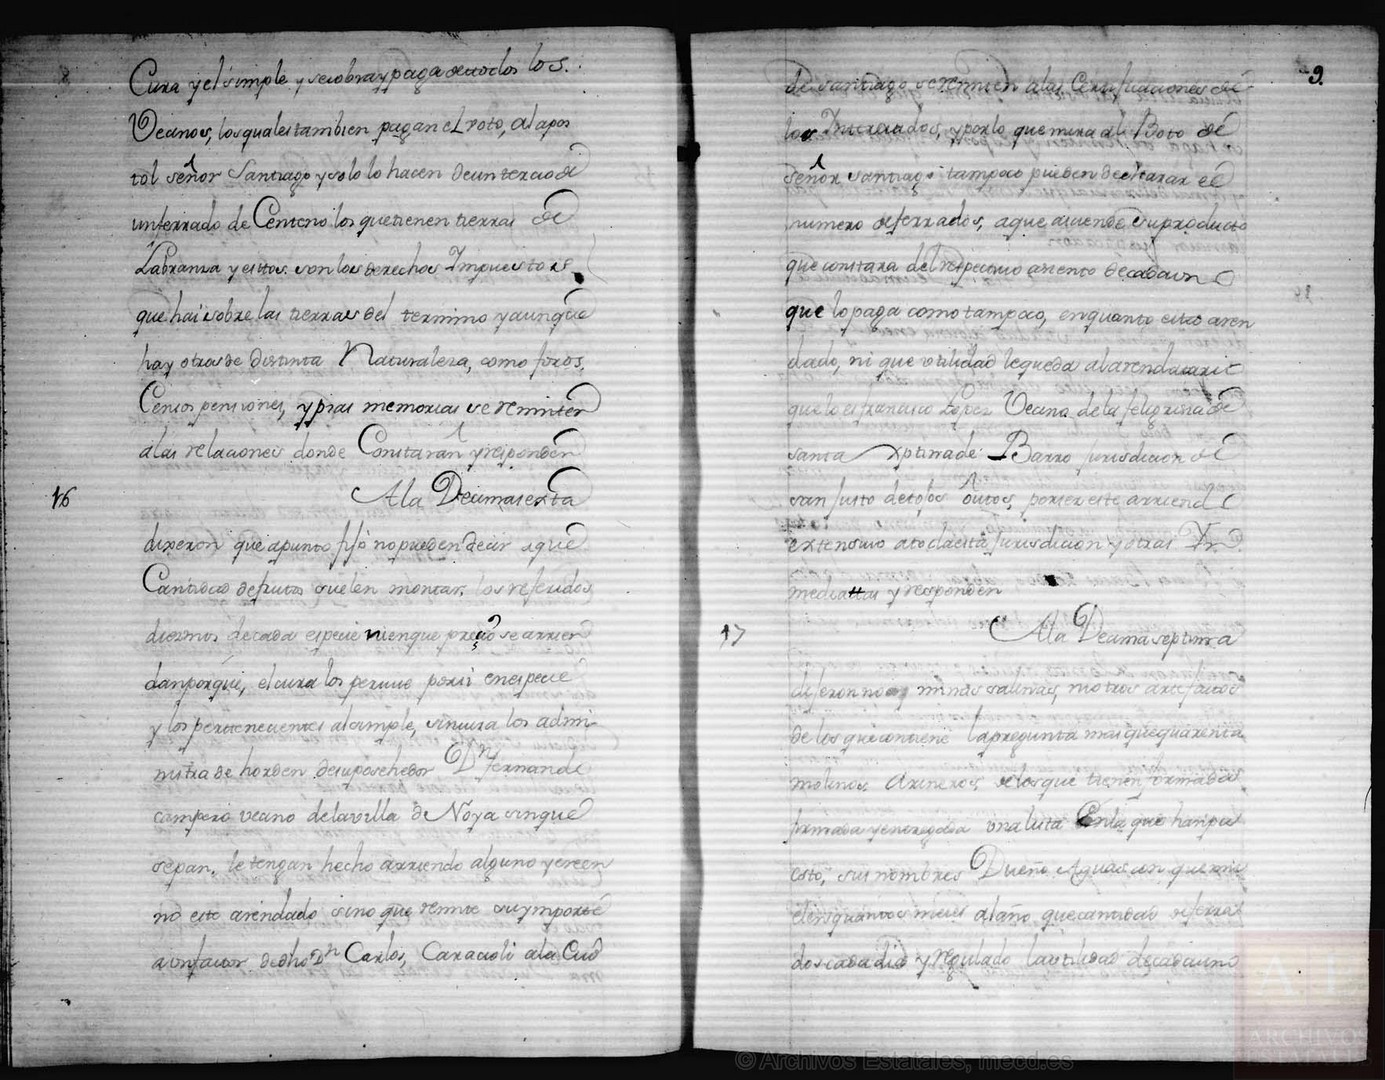 Cura y el simple y se cobra y paga de todos los
Vecinos, los quales tambien pagan el voto, al apos
tol señor Santiago y solo lo hacen de un tercio de
un ferrado de Centeno los que tienen tierras de
Labranza y estos son los derechos Impuestos
que hai sobre las tierras del termino y aunque
hay otras de distinta Naturaleza, como foros,
Censos pensiones, y pias memorias se remiten
a las relaciones donde Constaran y responden
16 A la Decima sexta
dixeron que a punto fijo no pueden decir a que
Cantidad de frutos suelen montar los referidos
diezmos de cada especie ni en que precio se arrien
dan porqui, el cura los percive por si en especie
y los pertenecientes al simple, sincura los admi-
nistra de horden de su poshehedor Dn fernando
campero vecino de la villa de Noya sin que
sepan, le tengan hecho arriendo alguno y creen
no este arendado sino que remite su ymporte
a un factor de dho Dn Carlos, Caracioli a la Ciud
9.
de Santiago se remiten a las Certificaciones de
los Interesados, y por lo que mira al Boto de
señor santiago tampoco pueden declarar el
numero de ferrados, a que asciende su producto
que constara del respectivo asiento de cada un
que lo paga como tampoco, en quanto esta aren
dado, ni que utilidad le queda al arendatario
que lo es francisco Lopez Vecino de la feligresia de
santa Xptina de Barro jurisdicion de
san Justo de tojos outos, por ser este arriendo
extensivo a toda esta jurisdicion y otras In
mediattas y responden
17 A la Decima septima
dijeron no ay minas salinas, ni otros artefactos
de los que contiene la pregunta mas que quarenta
molinos Arineros de los que tienen formada
firmada y entregada una lista En la que han pu
esto, sus nombres Dueño Aguas con que mu
elen quantos meses al año, que cantidad de ferra
dos cada dia y regulado la utilidad de cada uno
© Archivos Estatales, mecd.es
ARCHIVOS
ESTATALES